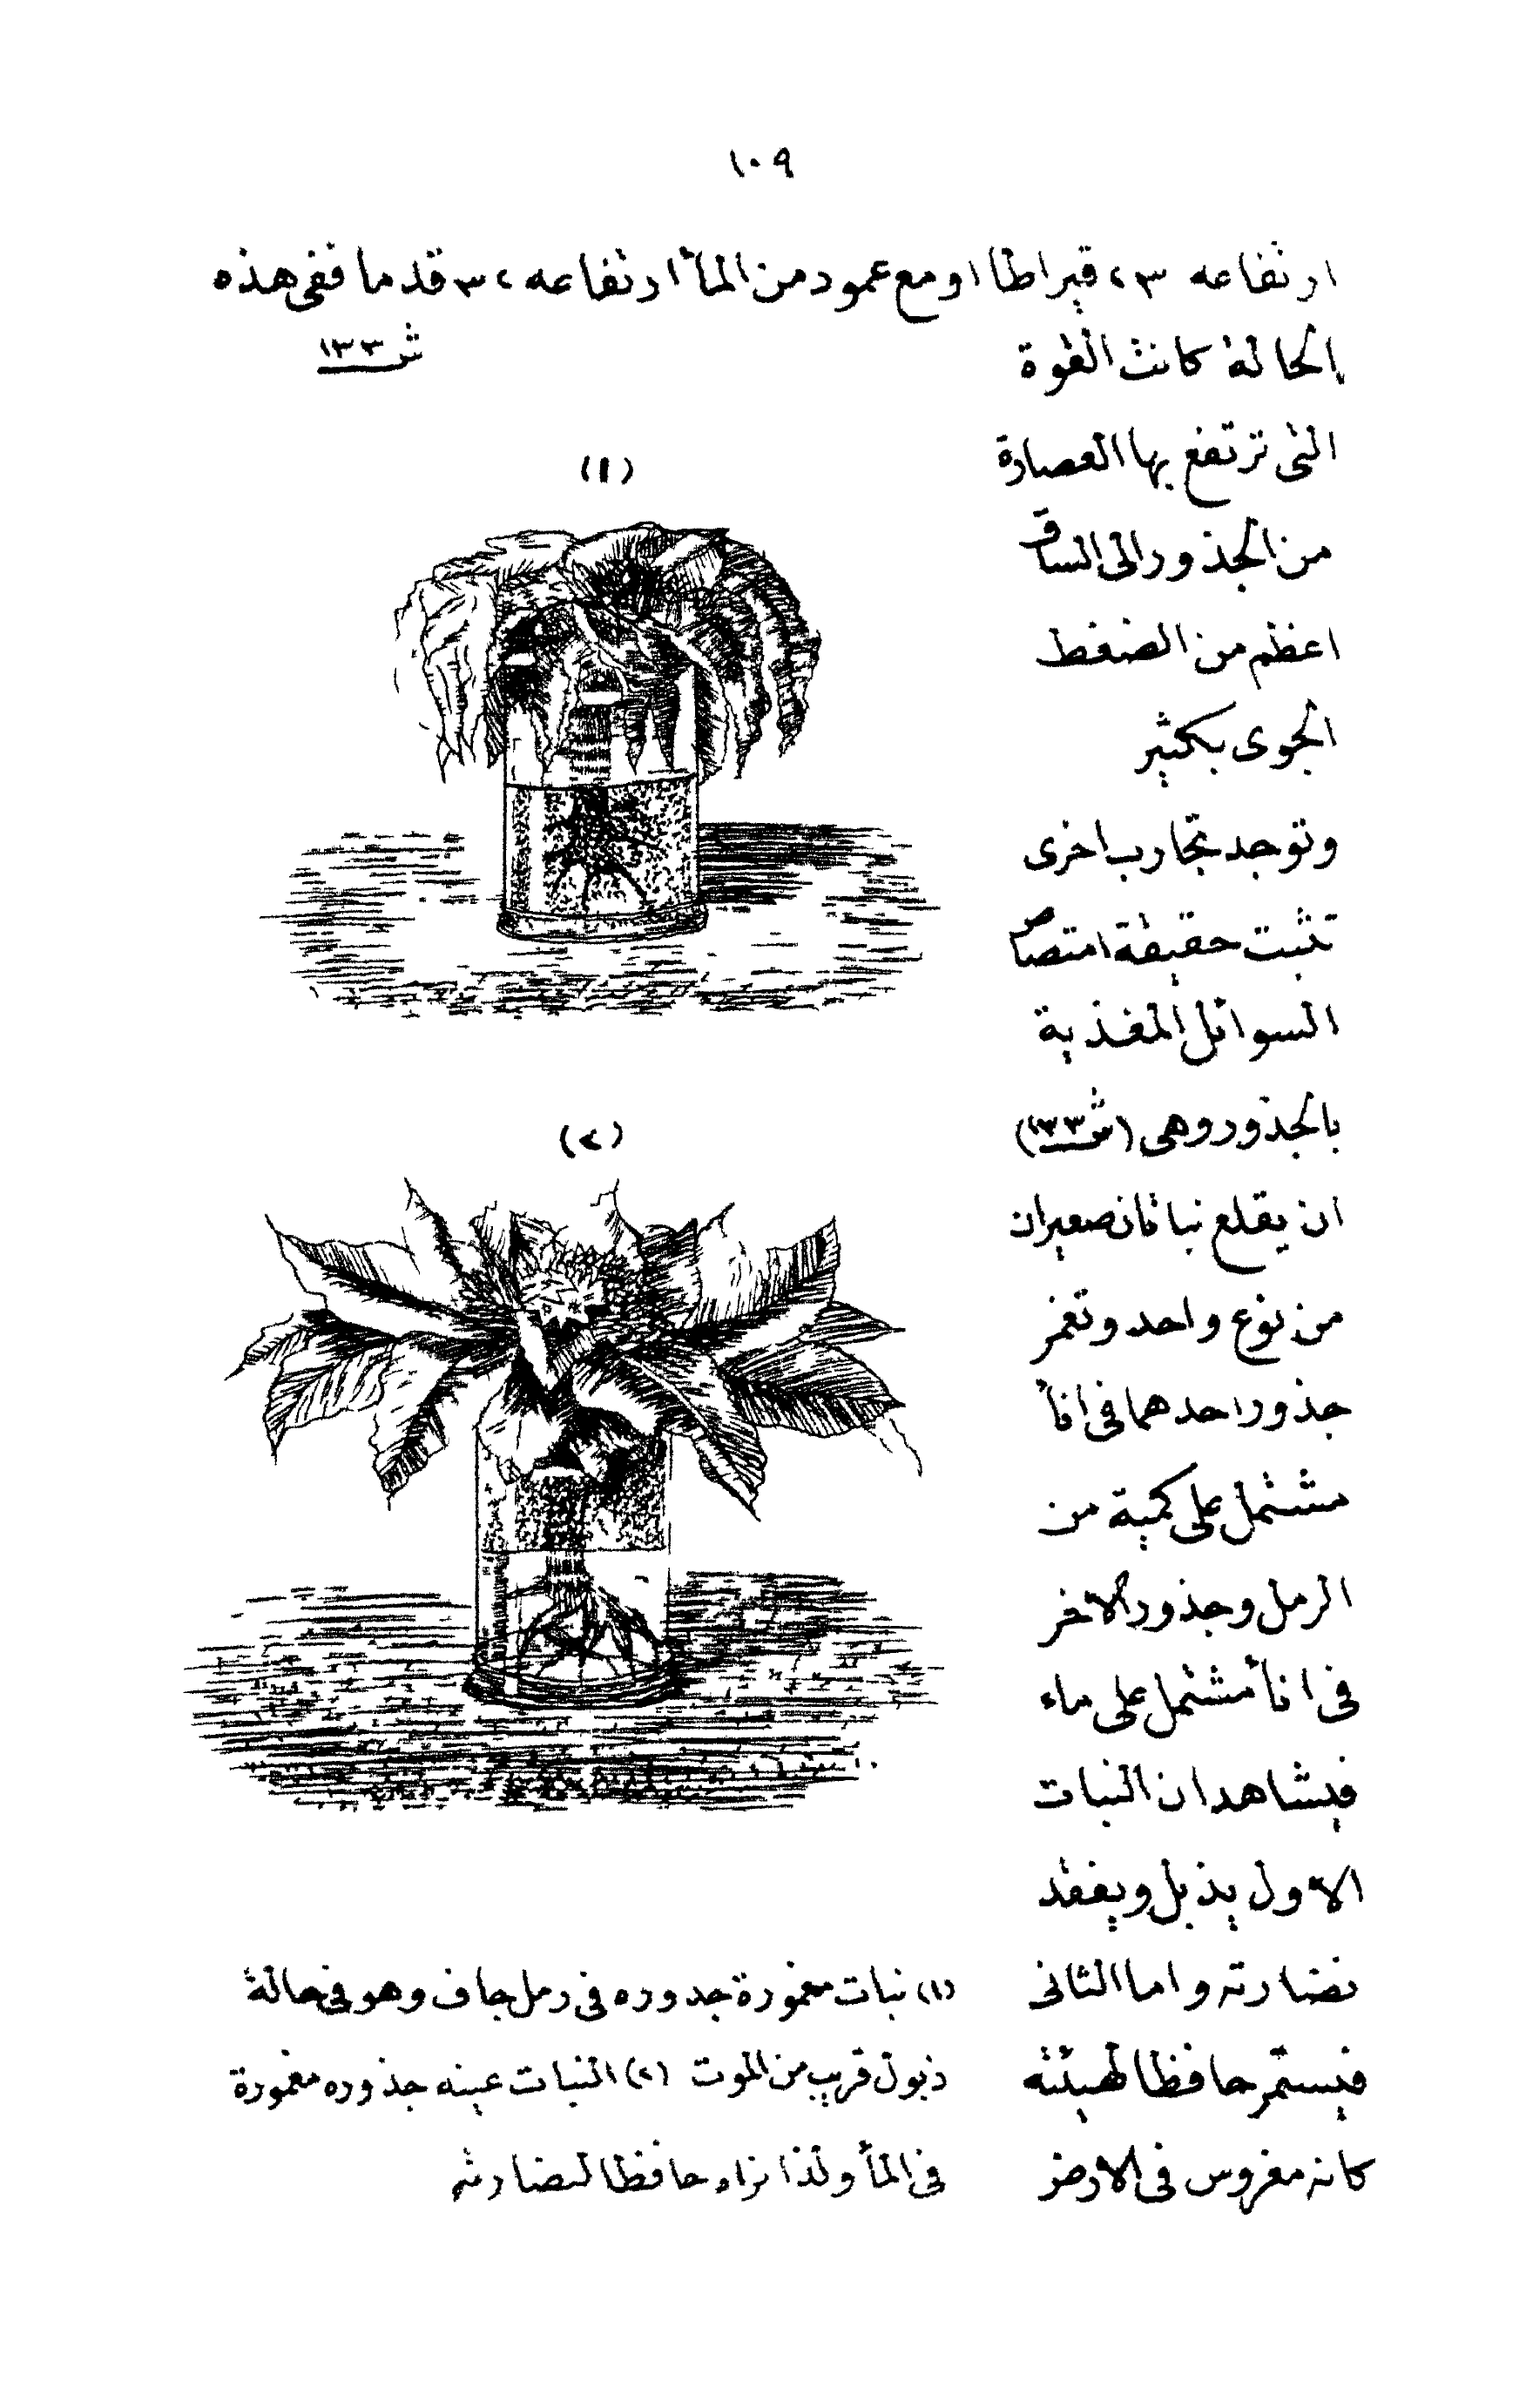 ١٠٩
ارتفاعه ٣٢ قيراطا او مع عمود من المأ ارتفاعه ٣٢ قدما ففى هذه
الحالة كانت القوة
ش ١٣٣
التى ترتفع بها العصارة
(١)
من الجذور الى الساق
اعظم من الضغط
الجوى بكثير
وتوجد تجارب اخرى
تثبت حقيقة امتصاص
السوائل المغذية
بالجذور وهى (ش ١٣٣)
(٢)
ان يقلع نباتان صغيران
من نوع واحد وتغمر
جذور احدهما فى انأ
مشتمل على كمية من
الرمل وجذور الاخر
فى انأ مشتمل على ماء
فيشاهد ان النبات
الاول يذبل ويفقد
نضارته واما الثانى
فيستمر حافظا لهيئته
كانه مغروس فى الارض
(١) نبات مغمورة جدوره فى رمل جاف وهو فى حالة
ذبول قريب من الموت (٢) النبات عينه جذوره مغمورة
فى المأ ولذا نراه حافظا لنضارته